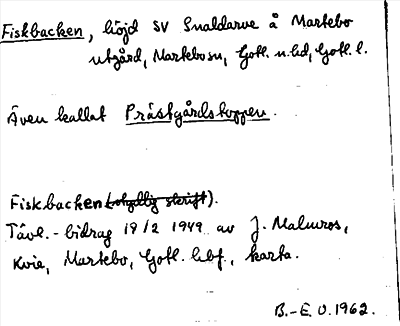 Fiskbacken, höjd SV Snaldarve å Martebo
utgård, Martebosn, Gotl. n. hd, Gotl. l.
Även kallat Prästgårdskoppen.
Fiskbacken (otydlig skrift).
Tävl.-bidrag 19/2 1949 av J. Malmros,
Kvie, Martebo, Gotl. hbf., karta.
B.-E. O. 1962.